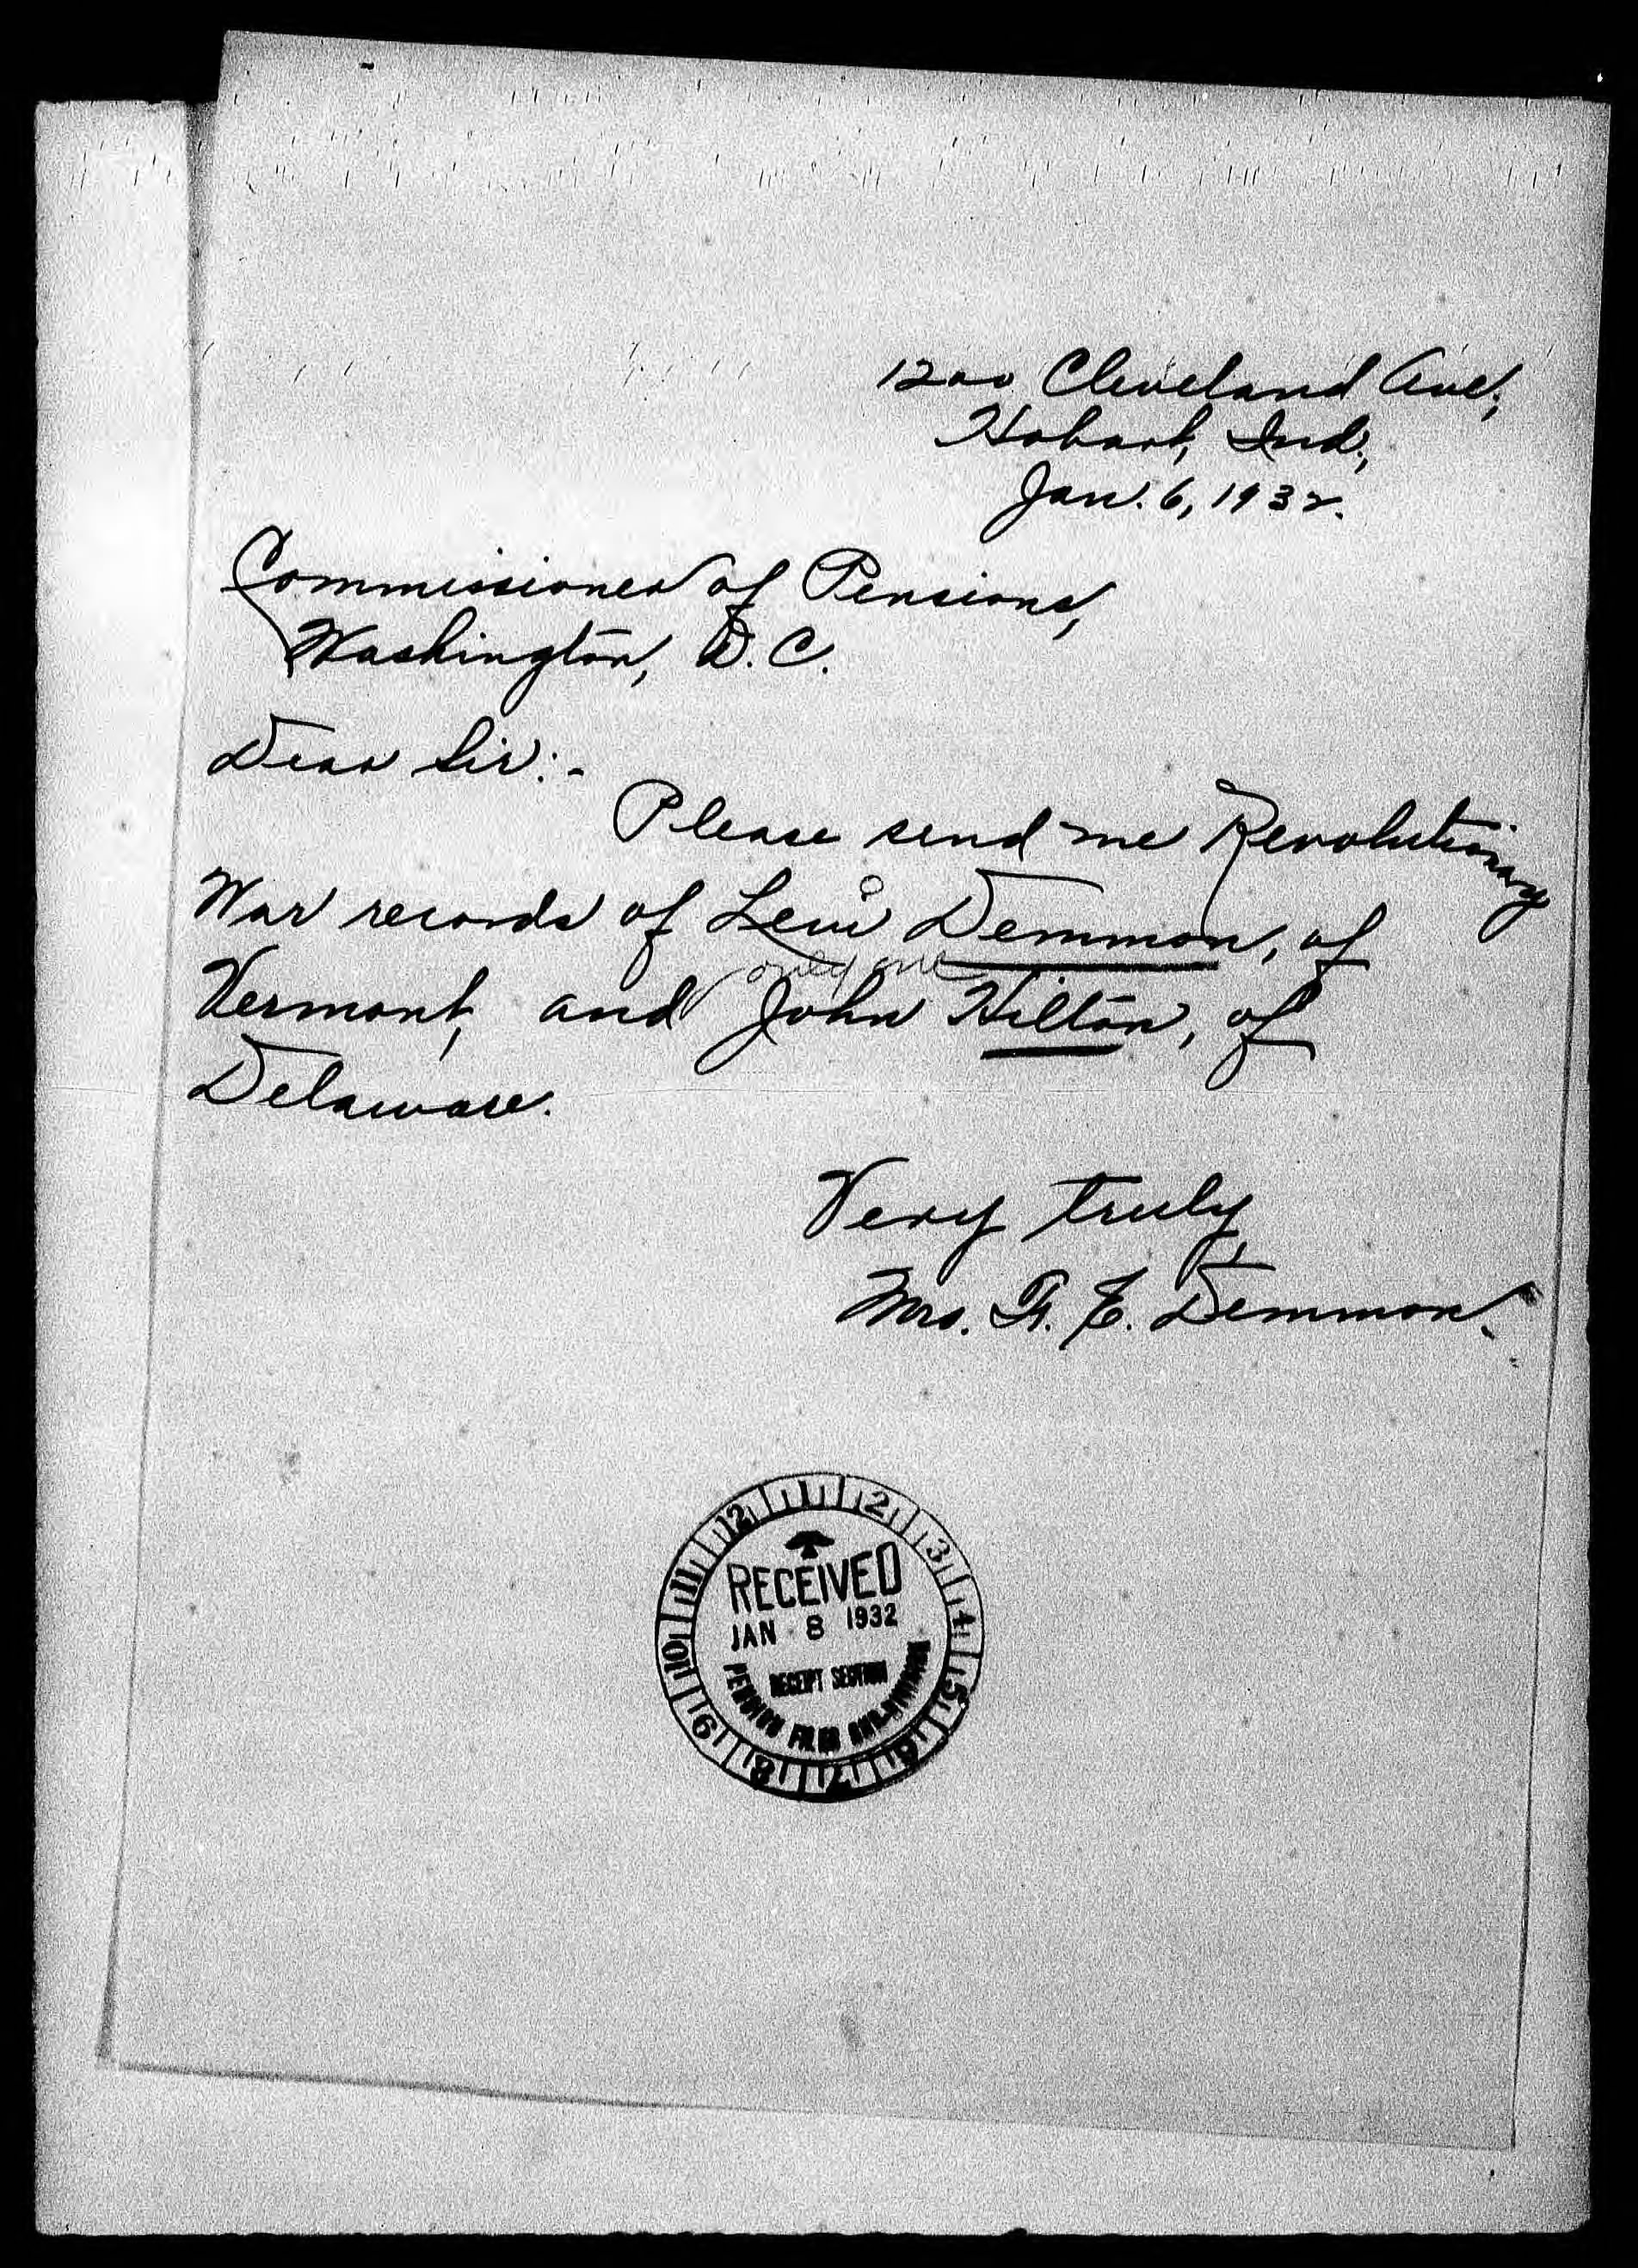 1200 Cleveland Ave.,
Hobart, Ind.,
Jan. 6, 1932.
Commissioner of Pensions,
Washington, D.C.
Dear Sir:-
Please send me Revolutionary
War records of Levi Demmon, of
only one
Vermont, and John Hilton, of
Delaware.
Very truly,
Mrs. F. E. Demmon.
12 1 2 3 4 5 6 7 8 9 10 11
RECEIVED
JAN 8 1932
RECEIPT SECTION
PENSION FILES SUB-DIVISION